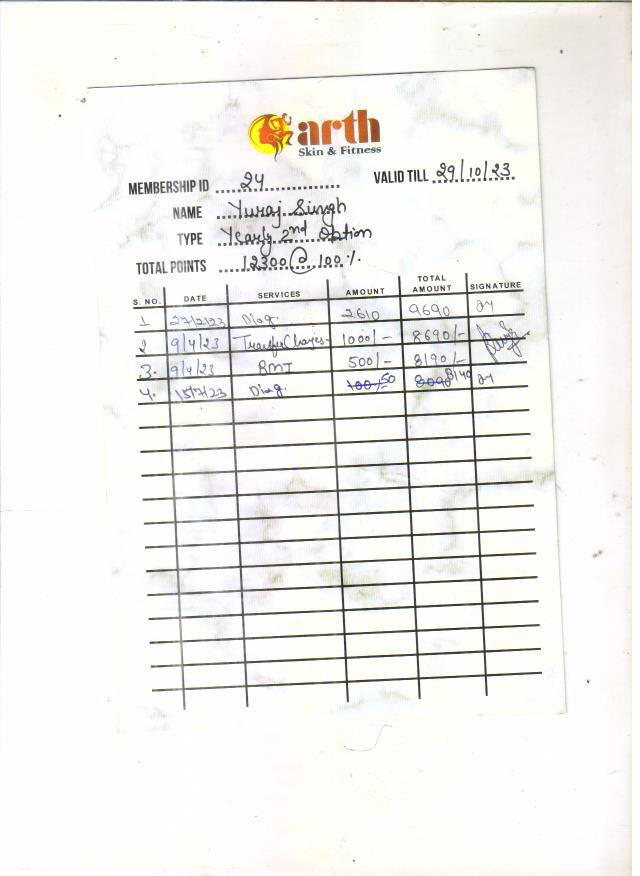 arth
Skin & Fitness
MEMBERSHIP ID 24 VALID TILL 29/10/23
NAME Yuraj Singh
TYPE Yearly 2nd Option
TOTAL POINTS 12300 @ 100%
S. NO. DATE SERVICES AMOUNT TOTAL AMOUNT SIGNATURE
1 27/2/23 Diag. 2610 9690
2 9/4/23 Transfer Charges 1000/- 8690/-
3. 9/4/23 BMI 500/- 8190/-
4. 15/7/23 Diag. 100/- 50 8090 8140